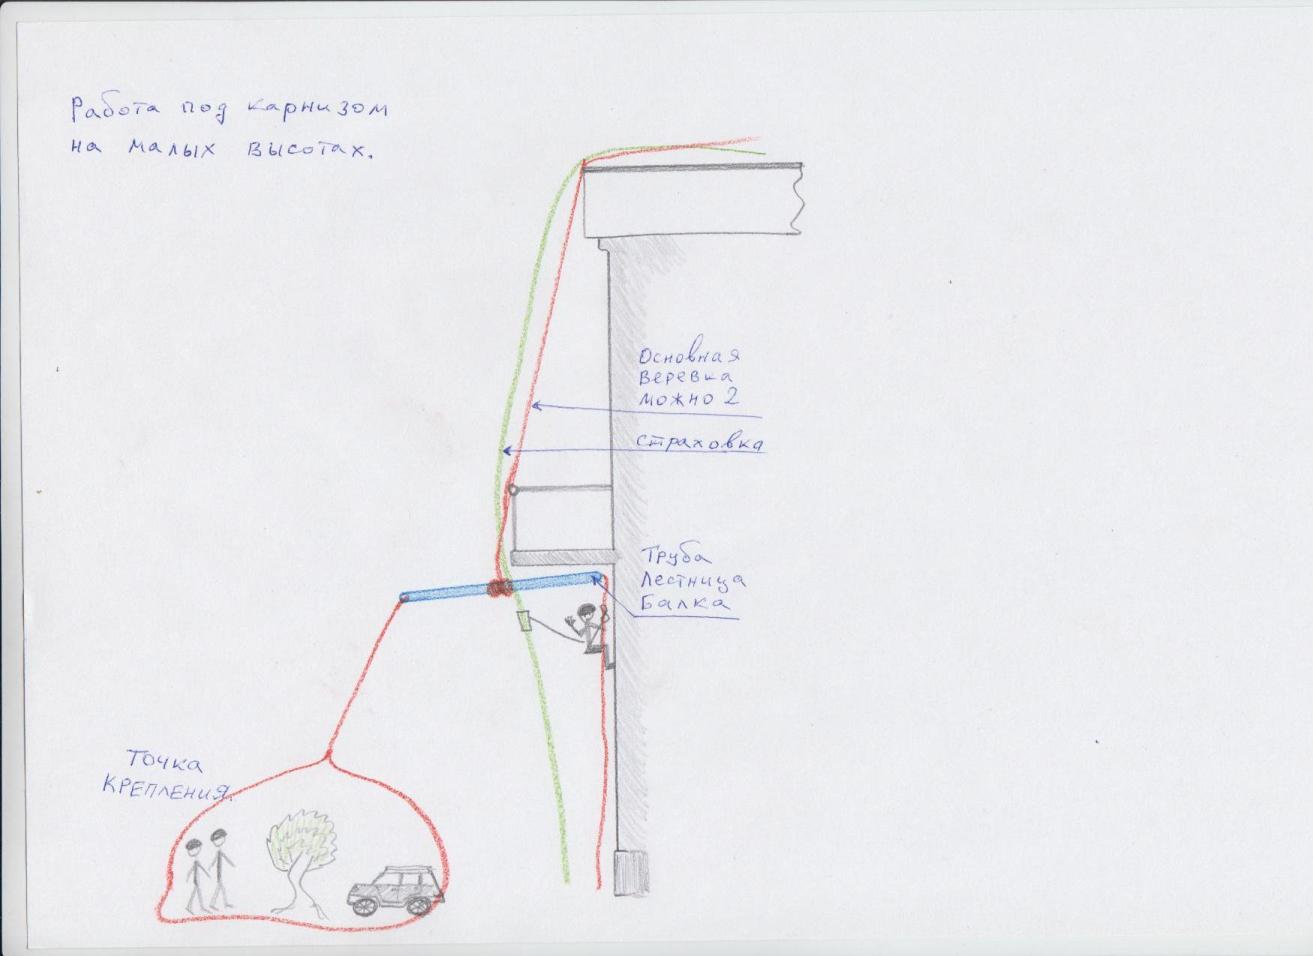 Работа под карнизом
на малых высотах.
Основная
веревка
можно 2
страховка
Труба
Лестница
Балка
Точка
крепления.